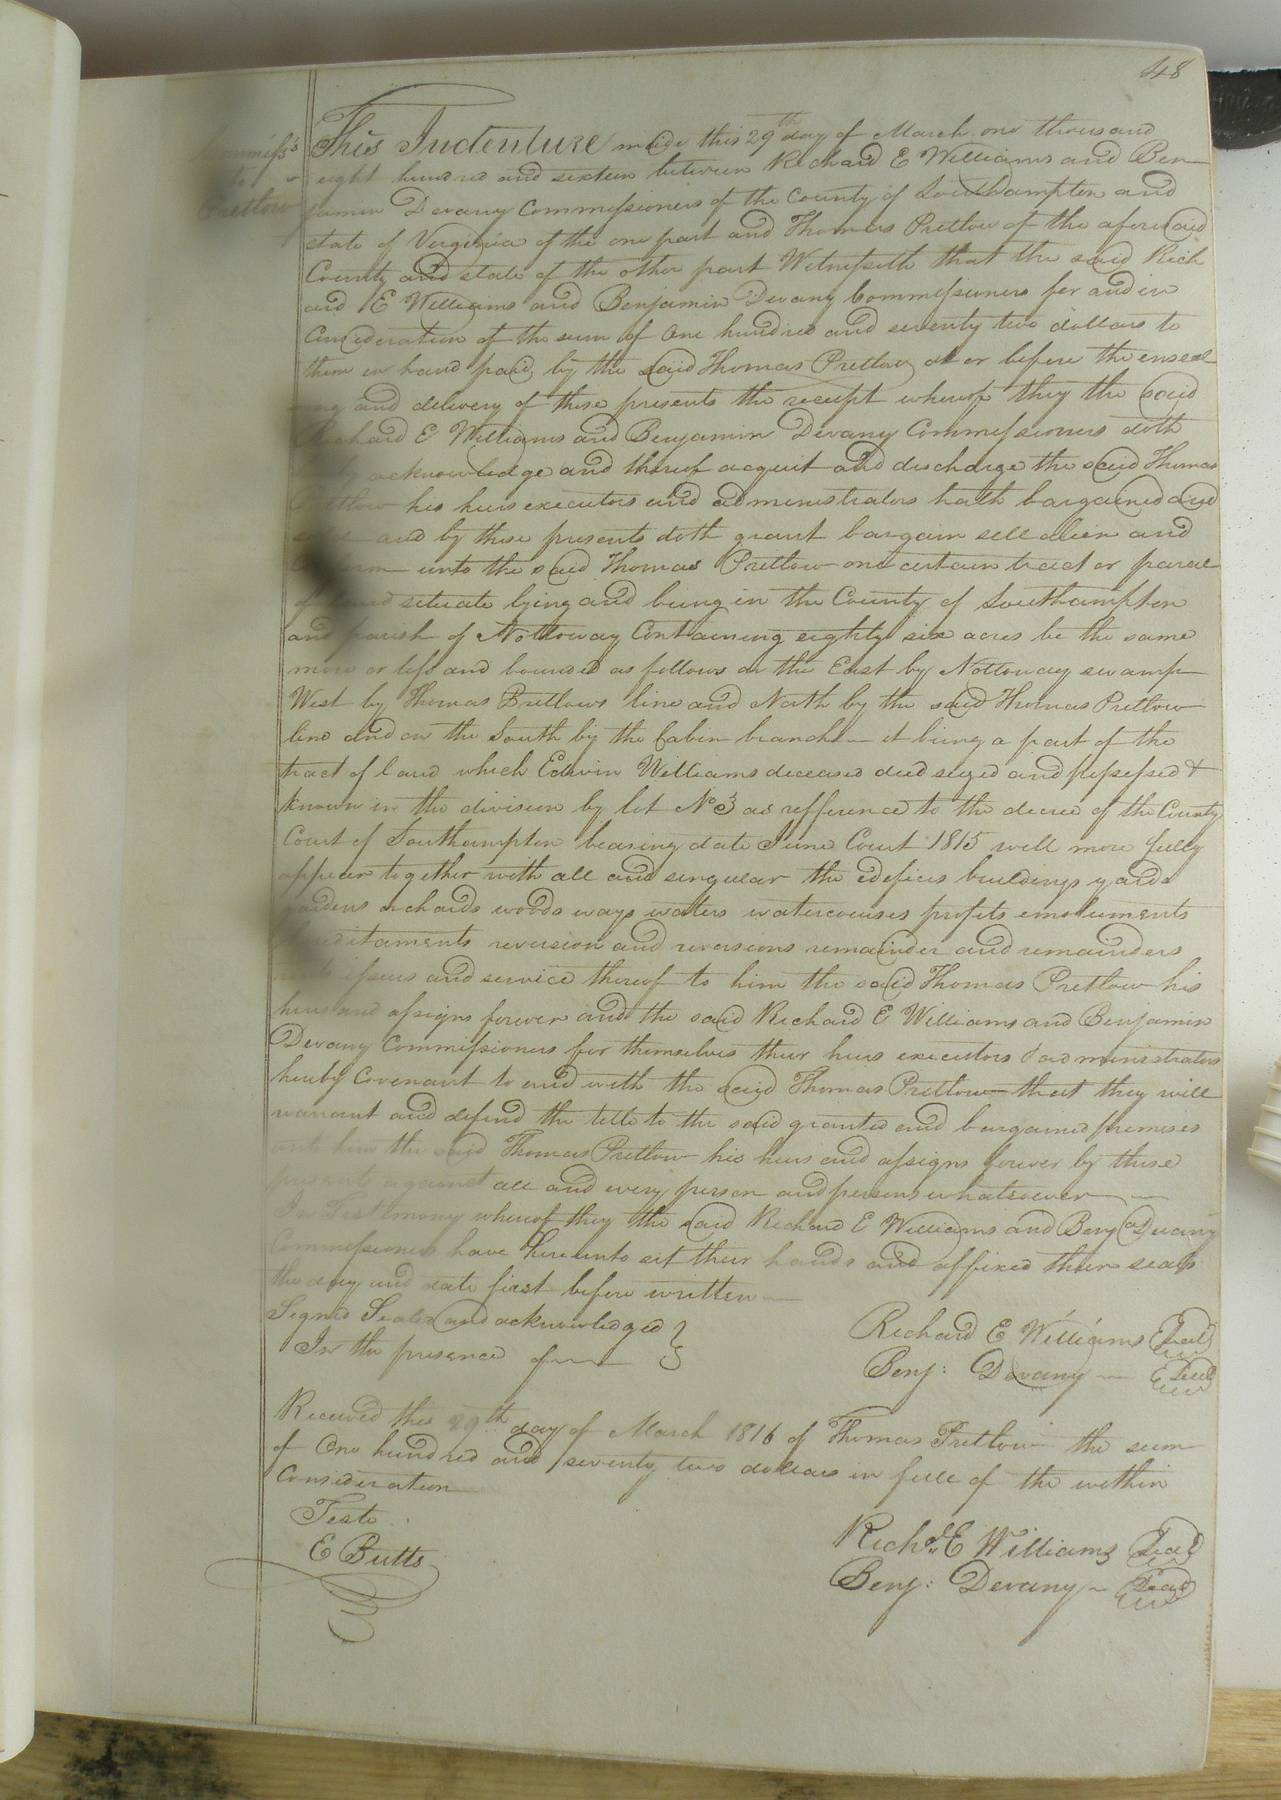 48
Commiss's
to
Pretlow
This Indenture made this 29th day of March one thousand
eight hundred and sixteen between Richard E Williams and Ben-
jamin Devany Commissioners of the County of Southampton and
state of Verginia of the one part and Thomas Pretlow of the aforesaid
County and state of the other part Witnesseth that the said Rich
ard E Williams and Benjamin Devany Commissioners for and in
Consideration of the sum of One hundred and seventy two dollars to
them in hand paid by the said Thomas Pretlow at or before the enseal
ing and delivery of these presents the receipt whereof they the said
Richard E Williams and Benjamin Devany Commissioners doth
acknowledge and thereof acquit and discharge the said Thomas
Pretlow his heirs executors and administrators hath bargained and
and by these presents doth grant bargain sell alien and
unto the said Thomas Pretlow one certain tract or parcel
of land situate lying and being in the County of Southampton
and parish of Nottoway Containing eighty six acres be the same
more or less and bounded as follows on the East by Nottoway swamp
West by Thomas Pretlows line and North by the said Thomas Pretlow
line and on the South by the Cabin branch - it being a part of the
tract of land which Edwin Williams deceased died seized and possessed &
known in the division by lot No 3 as refference to the decree of the County
Court of Southampton bearing date June Court 1815 will more fully
appear together with all and singular the edefices buildings yards
gardens orchards woods ways waters watercourses profits emoluments
hereditaments reversion and reversions remainder and remainders
rents issues and service thereof to him the said Thomas Pretlow his
heirs and assigns forever and the said Richard E Williams and Benjamin
Devany Commissioners for themselves their heirs executors & administrators
hereby Covenant to and with the said Thomas Pretlow that they will
warrant and defend the title to the said granted and bargained premises
unto him the said Thomas Pretlow his heirs and assigns forever by these
presents against all and every person and persons whatsoever
In Testimony whereof they the said Richard E Williams and Benj Devany
Commissioners have hereunto set their hands and affixed their seals
the day and date first before written
Signed Sealed and acknowledged }
In the presence of
Richard E Williams Seal
Benj: Devany Seal
Received this 29th day of March 1816 of Thomas Pretlow the sum
of One hundred and seventy two dollars in full of the within
Consideration
Teste
E Butts
Richd. E Williams Seal
Benj: Devany Seal